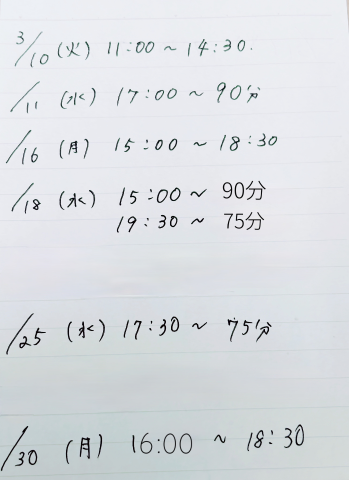 3/10 (火) 11:00 ~ 14:30.
/11 (水) 17:00 ~ 90分
/16 (月) 15:00 ~ 18:30
/18 (水) 15:00 ~ 90分
19:30 ~ 75分
/25 (水) 17:30 ~ 75分
/30 (月) 16:00 ~ 18:30